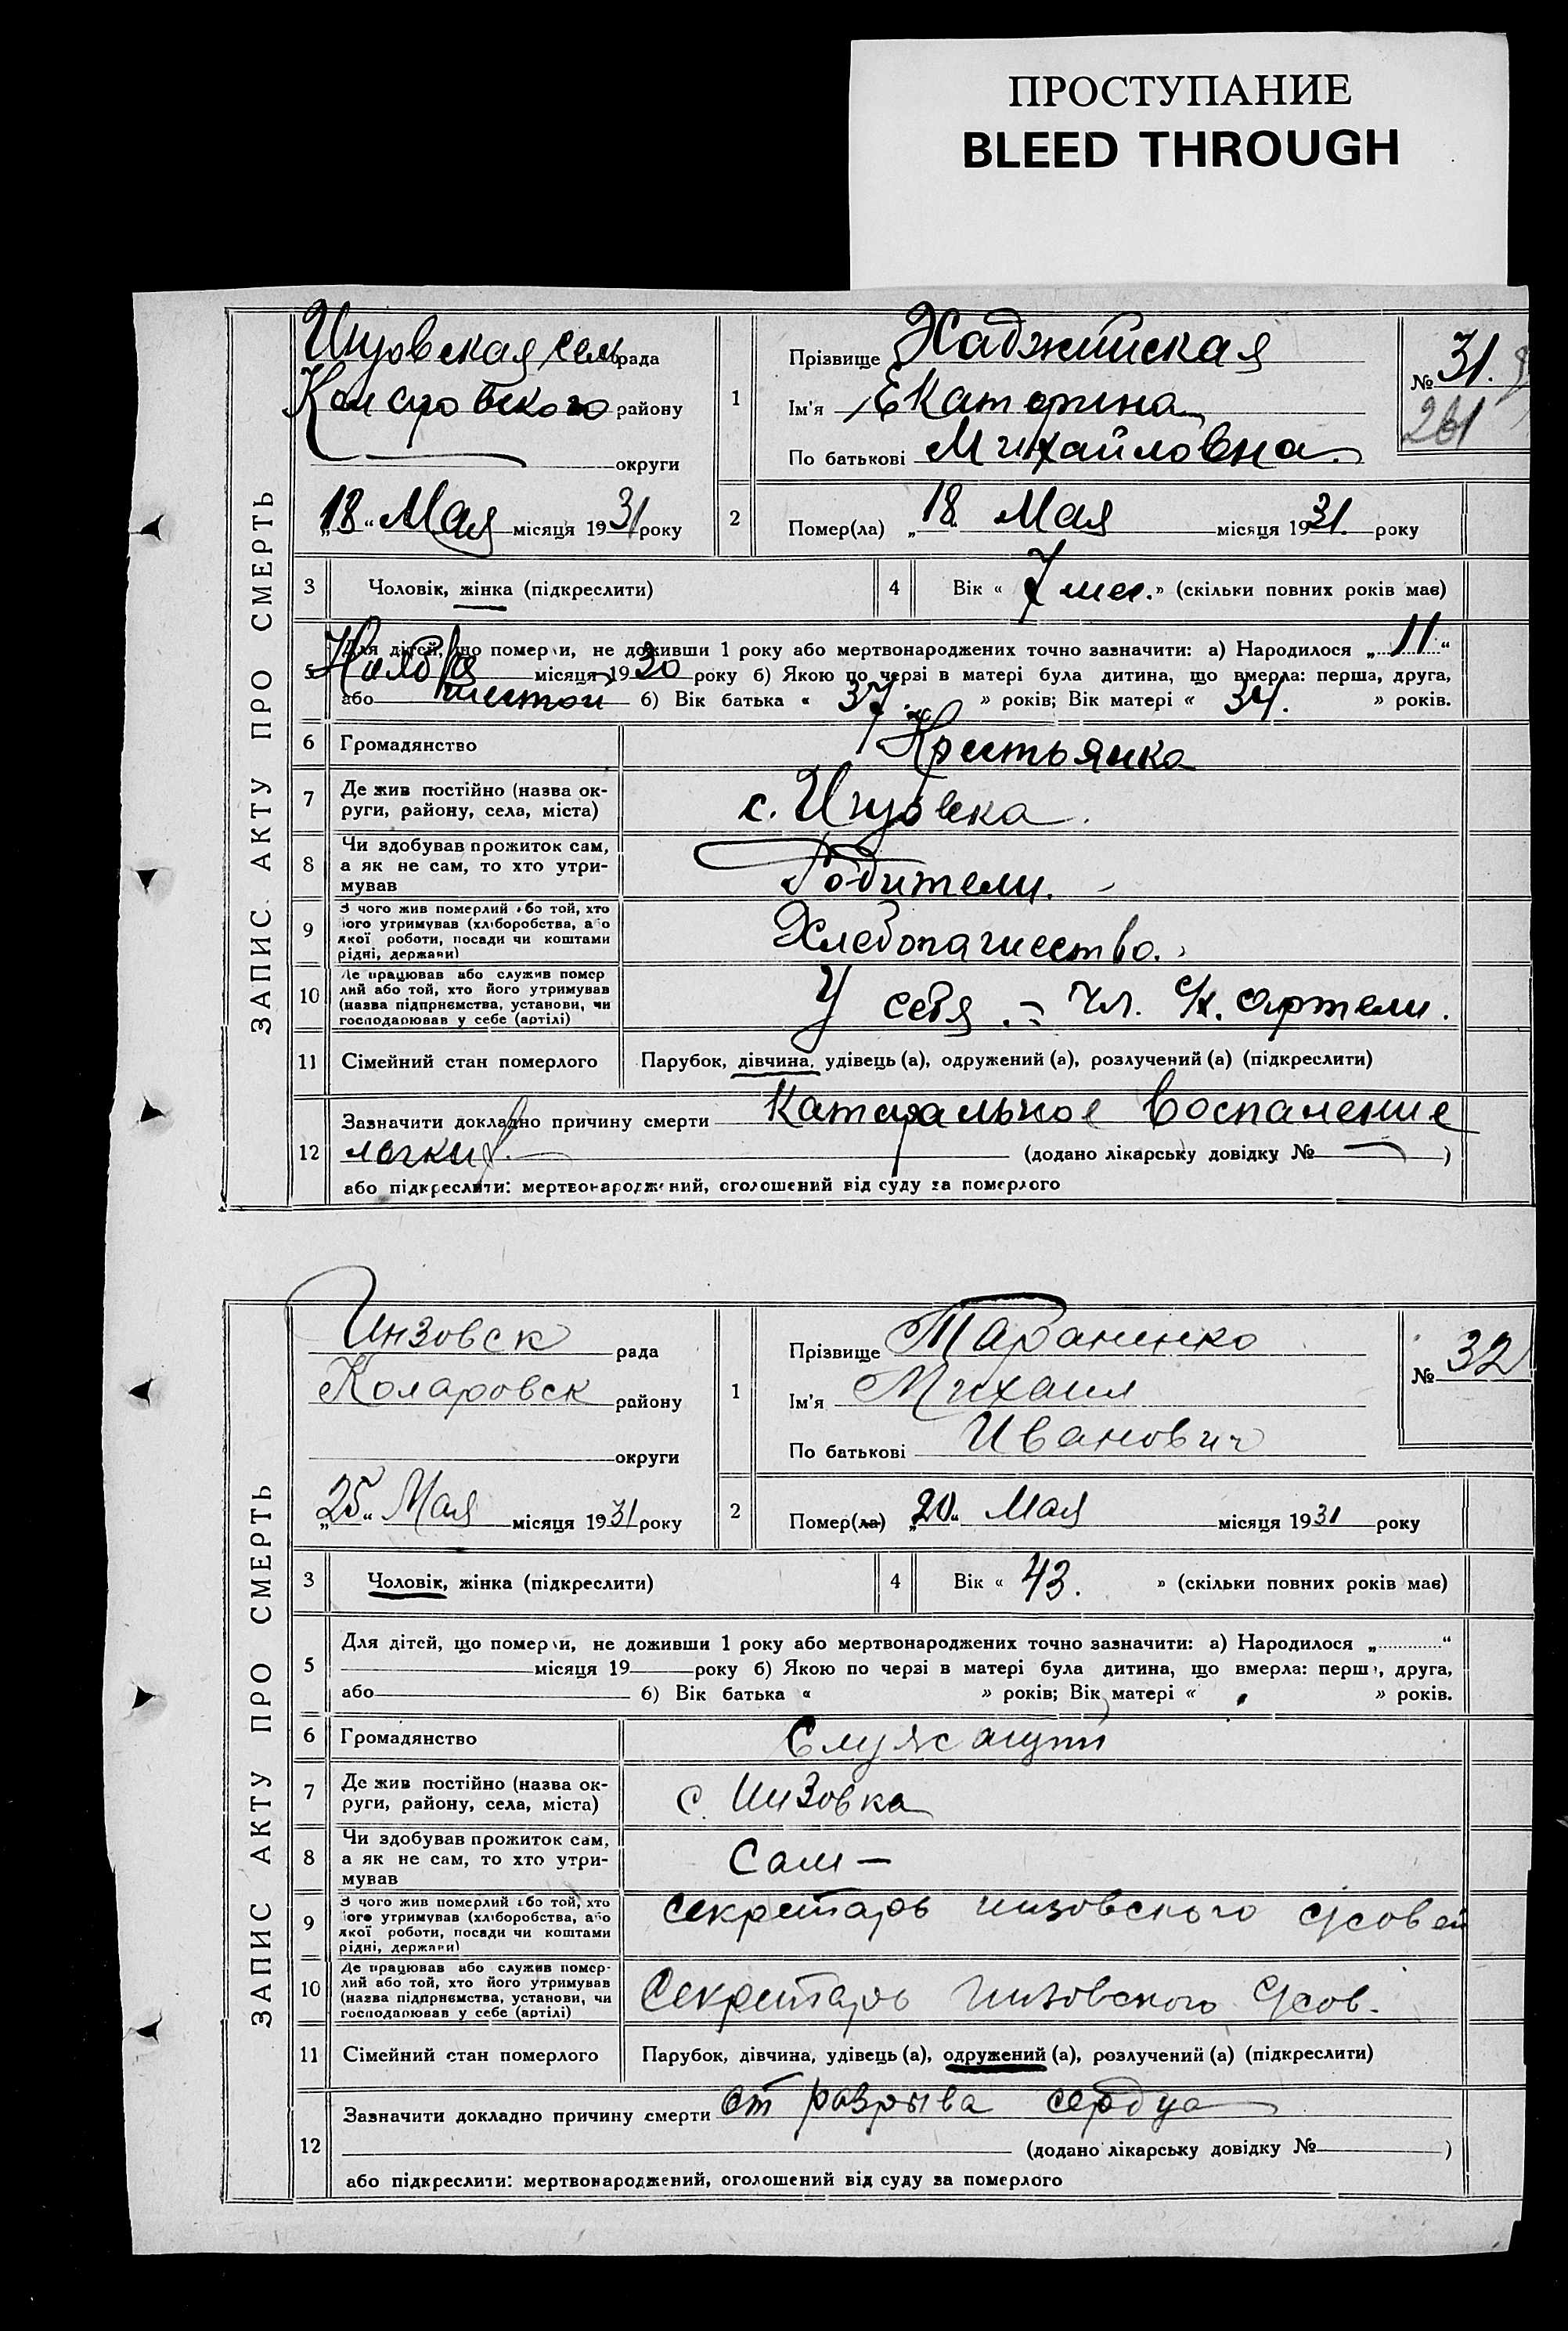 ПРОСТУПАНИЕ
BLEED THROUGH
ЗАПИС АКТУ ПРО СМЕРТЬ
Инзовская сельрада
Коларовского району
округи
„18“ Мая місяця 1931 року
1
Прізвище Хаджийская
Ім'я Екатерина
По батькові Михайловна
№ 31.
261
2 Помер(ла) „18 Мая місяця 1931. року
3 Чоловік, жінка (підкреслити)
4 Вік « 7 мес. » (скільки повних років має)
5 Для дітей, що померли, не доживши 1 року або мертвонароджених точно зазначити: а) Народилося „11“
Ноября місяця 1930 року б) Якою по черзі в матері була дитина, що вмерла: перша, друга,
або шестой б) Вік батька « 37 » років; Вік матері « 34. » років.
6 Громадянство Крестьянка
7 Де жив постійно (назва ок-
руги, району, села, міста) с. Инзовка.
8 Чи здобував прожиток сам,
а як не сам, то хто утри-
мував Родители.
9 З чого жив померлий або той, хто
його утримував (хліборобства, або
якої роботи, посади чи коштами
рідні, держави) Хлебопашество.
10 Де працював або служив помер
лий або той, хто його утримував
(назва підприємства, установи, чи
господарював у себе (артілі) У себя. - чл. с/х. артели.
11 Сімейний стан померлого Парубок, дівчина, удівець (а), одружений (а), розлучений (а) (підкреслити)
12 Зазначити докладно причину смерти Катаральное воспаление
легких. (додано лікарську довідку № — )
або підкреслити: мертвонароджений, оголошений від суду за померлого
ЗАПИС АКТУ ПРО СМЕРТЬ
Инзовск рада
Коларовск району
округи
„25“ Мая місяця 1931 року
1
Прізвище Тараненко
Ім'я Михаил
По батькові Иванович
№ 32
2 Помер(ла) „20“ Мая місяця 1931 року
3 Чоловік, жінка (підкреслити)
4 Вік « 43. » (скільки повних років має)
5 Для дітей, що померли, не доживши 1 року або мертвонароджених точно зазначити: а) Народилося „ “
місяця 19 року б) Якою по черзі в матері була дитина, що вмерла: перша, друга,
або б) Вік батька « » років; Вік матері « » років.
6 Громадянство Служащий
7 Де жив постійно (назва ок-
руги, району, села, міста) с. Инзовка
8 Чи здобував прожиток сам,
а як не сам, то хто утри-
мував Сам —
9 З чого жив померлий або той, хто
його утримував (хліборобства, або
якої роботи, посади чи коштами
рідні, держави) секретарь инзовского
10 Де працював або служив помер-
лий або той, хто його утримував
(назва підприємства, установи, чи
господарював у себе (артілі) Секретарь инзовского
11 Сімейний стан померлого Парубок, дівчина, удівець (а), одружений (а), розлучений (а) (підкреслити)
12 Зазначити докладно причину смерти от разрыва сердца
(додано лікарську довідку № )
або підкреслити: мертвонароджений, оголошений від суду за померлого